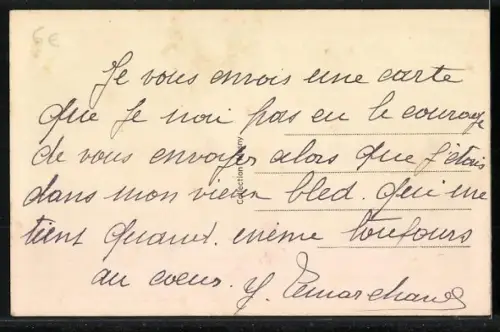 6€
Je vous envois une carte
que je n'ai pas eu le courage
de vous envoyer alors que j'étais
dans mon vieux bled. qui me
tient quand même toujours
au coeur. Y. Lemarchand
Collection